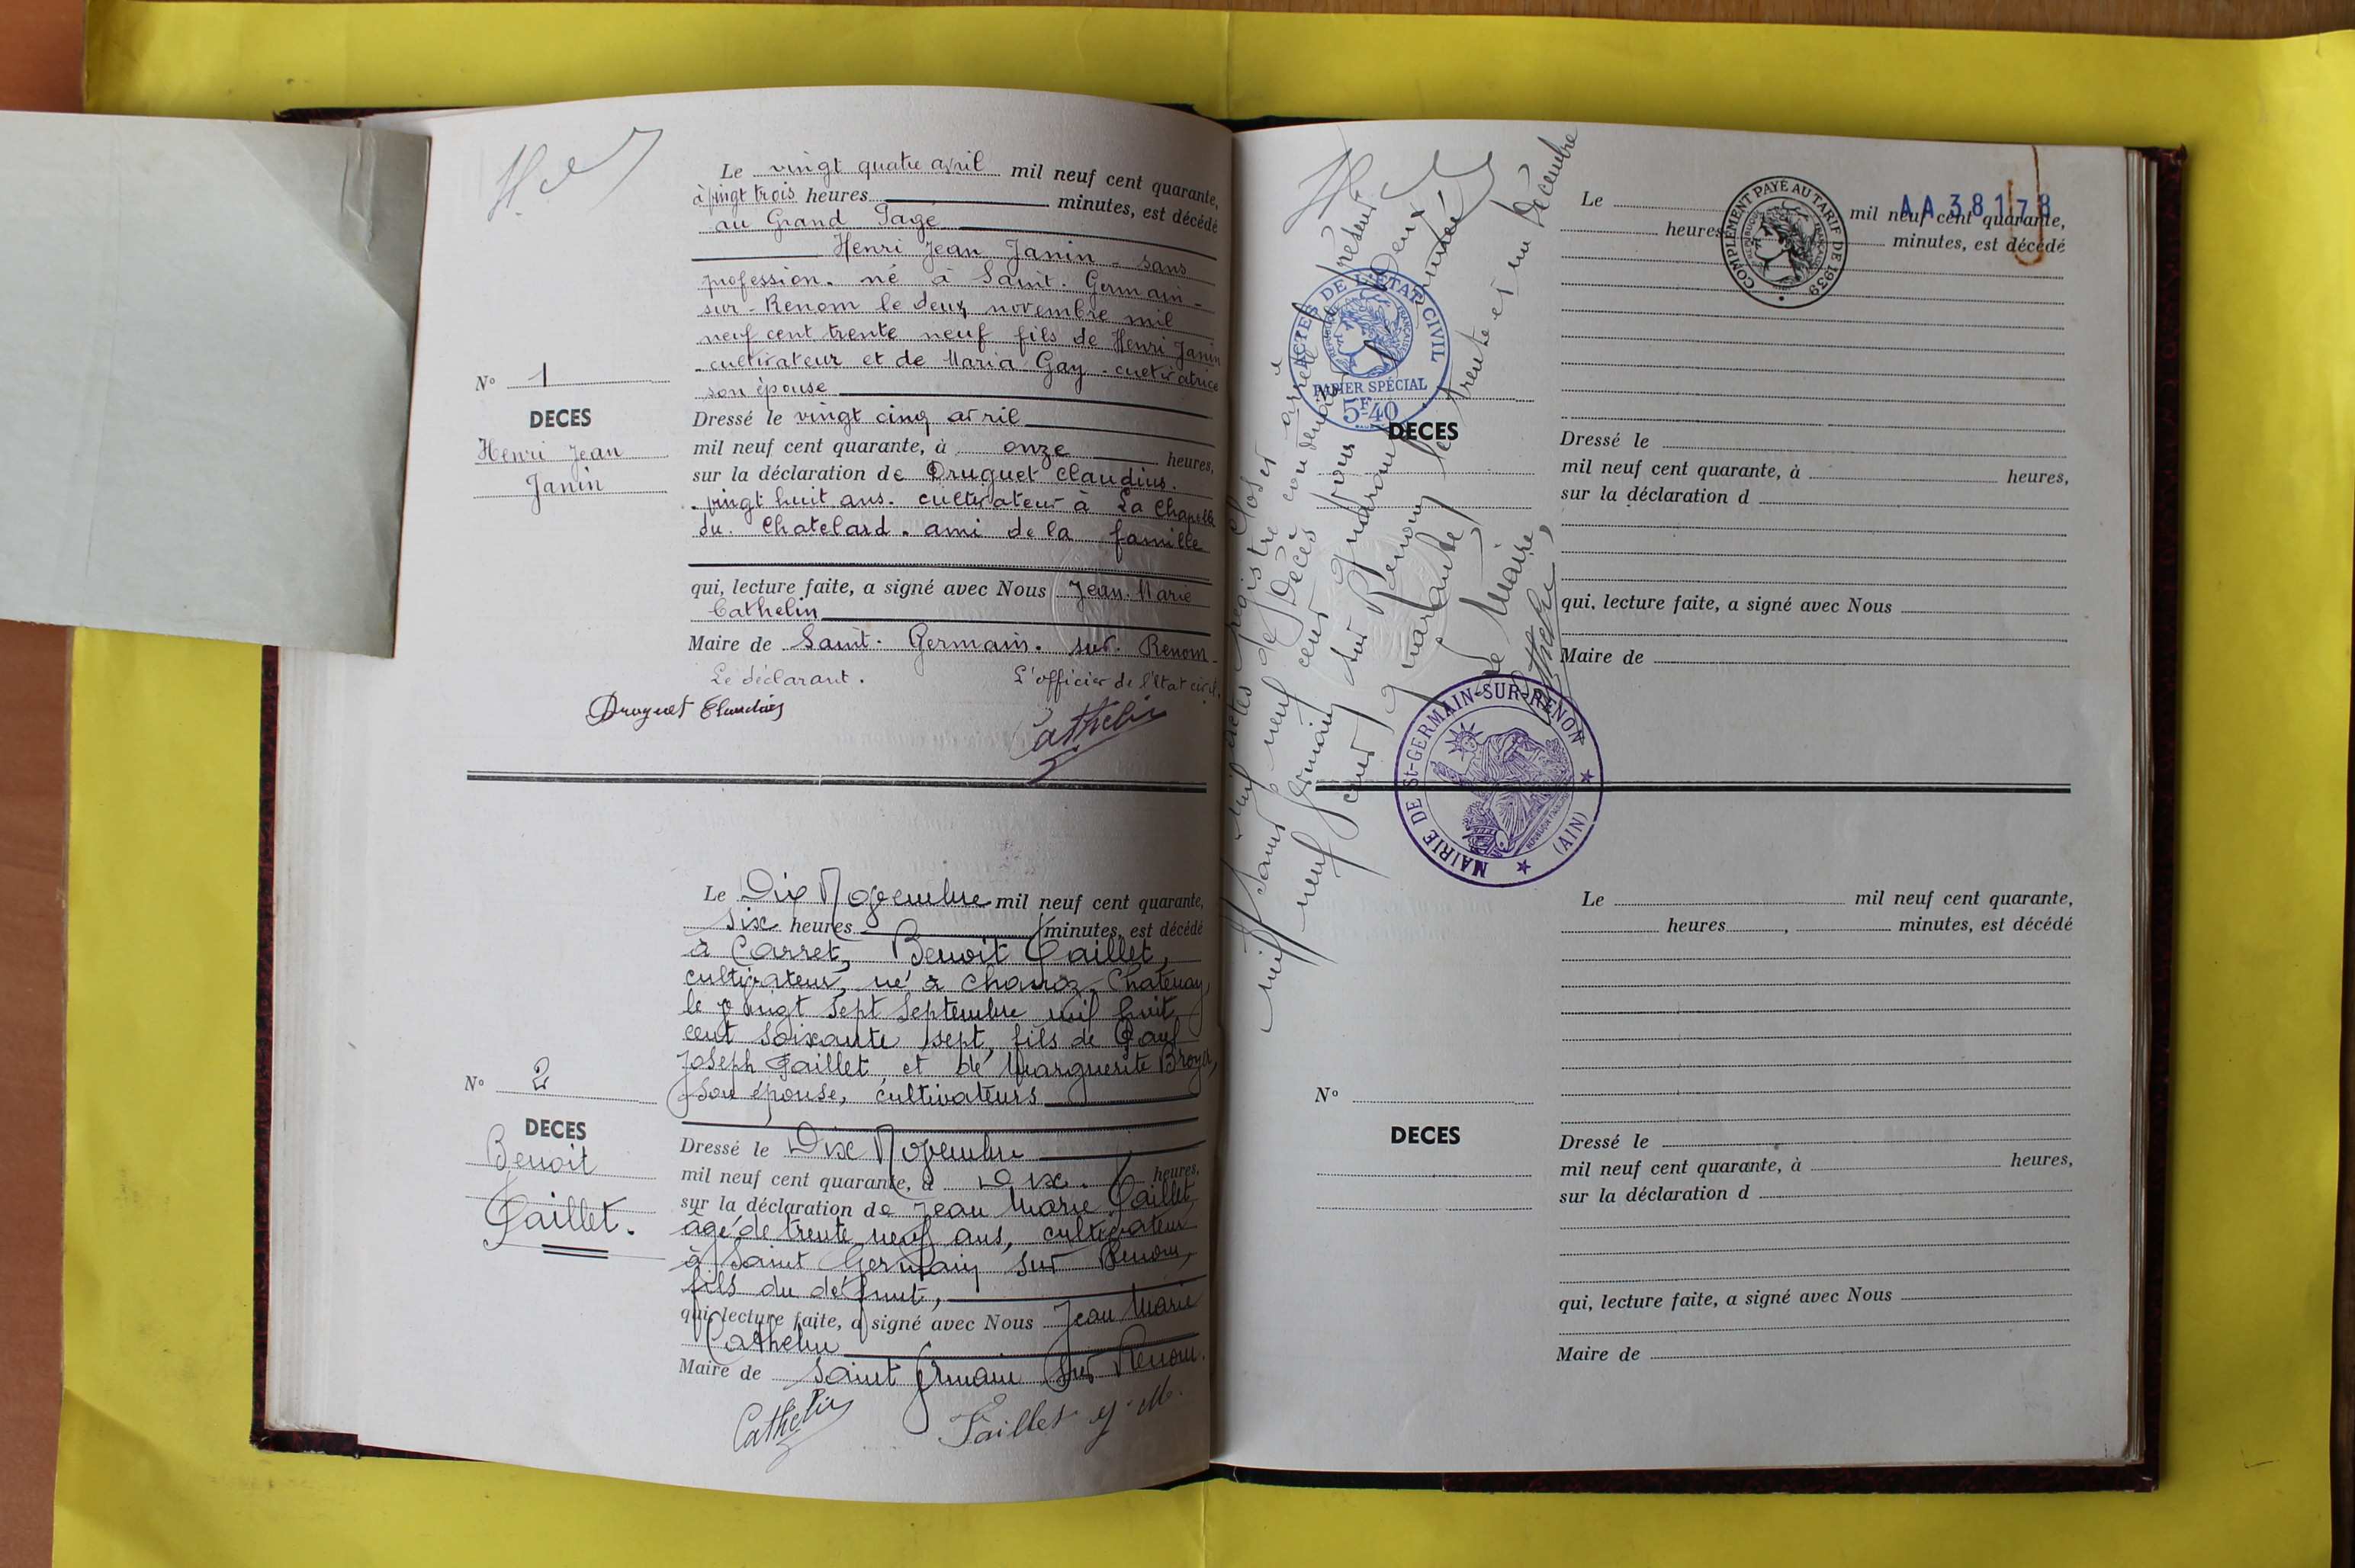 Le vingt quatre avril mil neuf cent quarante,
à vingt trois heures minutes, est décédé
au Grand Pagé
Henri Jean Janin - sans
profession. né à Saint. Germain-
sur-Renom le deux novembre mil
neuf cent trente neuf fils de Henri Janin
cultivateur et de Maria Gay. cultivatrice
son épouse
N° 1
DECES
Henri Jean
Janin
Dressé le vingt cinq avril
mil neuf cent quarante, à onze heures,
sur la déclaration de Druguet Claudius.
vingt huit ans. cultivateur à La Chapelle
du Chatelard. ami de la famille
qui, lecture faite, a signé avec Nous Jean. Marie
Cathelin
Maire de Saint. Germain. sur. Renom
Le déclarant. L'officier de l'état civil.
Druguet Claudius
Cathelin
Le Dix Novembre mil neuf cent quarante,
six heures minutes, est décédé
à Carret, Benoit Paillet,
cultivateur, né à Chanoz-Chatenay
le vingt sept septembre mil huit
cent soixante sept, fils de Paul
Joseph Paillet et de Marguerite Broyer,
son épouse, cultivateurs
N° 2
DECES
Benoit
Paillet.
Dressé le Dix Novembre
mil neuf cent quarante, à Dix heures,
sur la déclaration de Jean Marie Paillet,
âgé de trente neuf ans, cultivateur
à Saint Germain sur Renom,
fils du défunt,
qui, lecture faite, a signé avec Nous Jean Marie
Cathelin
Maire de Saint Germain sur Renom.
Cathelin
Paillet J. M.
clos et arrêté
le présent registre
de Décès
mil neuf cent quarante
Saint Germain sur Renom le trente et un Décembre
mil neuf cent quarante
Le Maire,
Cathelin
ACTES DE L'ETAT CIVIL
PAPIER SPÉCIAL
5F40
MAIRIE DE St-GERMAIN-SUR-RENON
(AIN)
COMPLÉMENT PAYÉ AU TARIF DE 1939
AA 38178
Le mil neuf cent quarante,
heures minutes, est décédé
DECES
Dressé le
mil neuf cent quarante, à heures,
sur la déclaration d
qui, lecture faite, a signé avec Nous
Maire de
Le mil neuf cent quarante,
heures, minutes, est décédé
N°
DECES
Dressé le
mil neuf cent quarante, à heures,
sur la déclaration d
qui, lecture faite, a signé avec Nous
Maire de